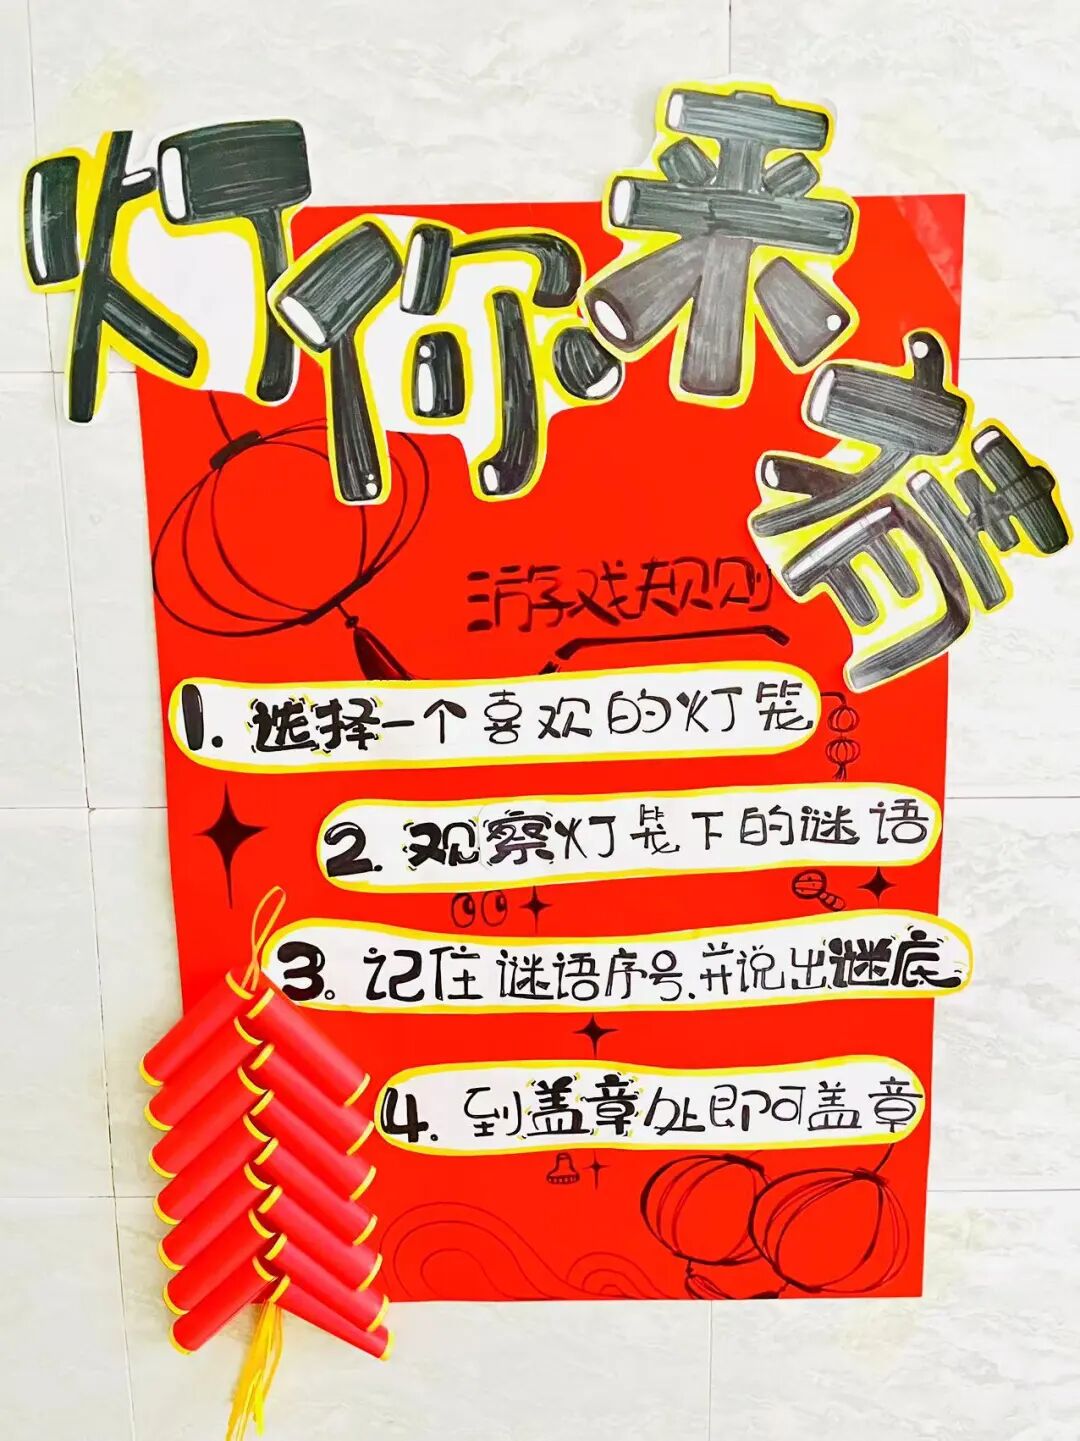 灯你来猜
游戏规则
1. 选择一个喜欢的灯笼
2. 观察灯笼下的谜语
3。记住谜语序号、并说出谜底.
4. 到盖章处即可盖章